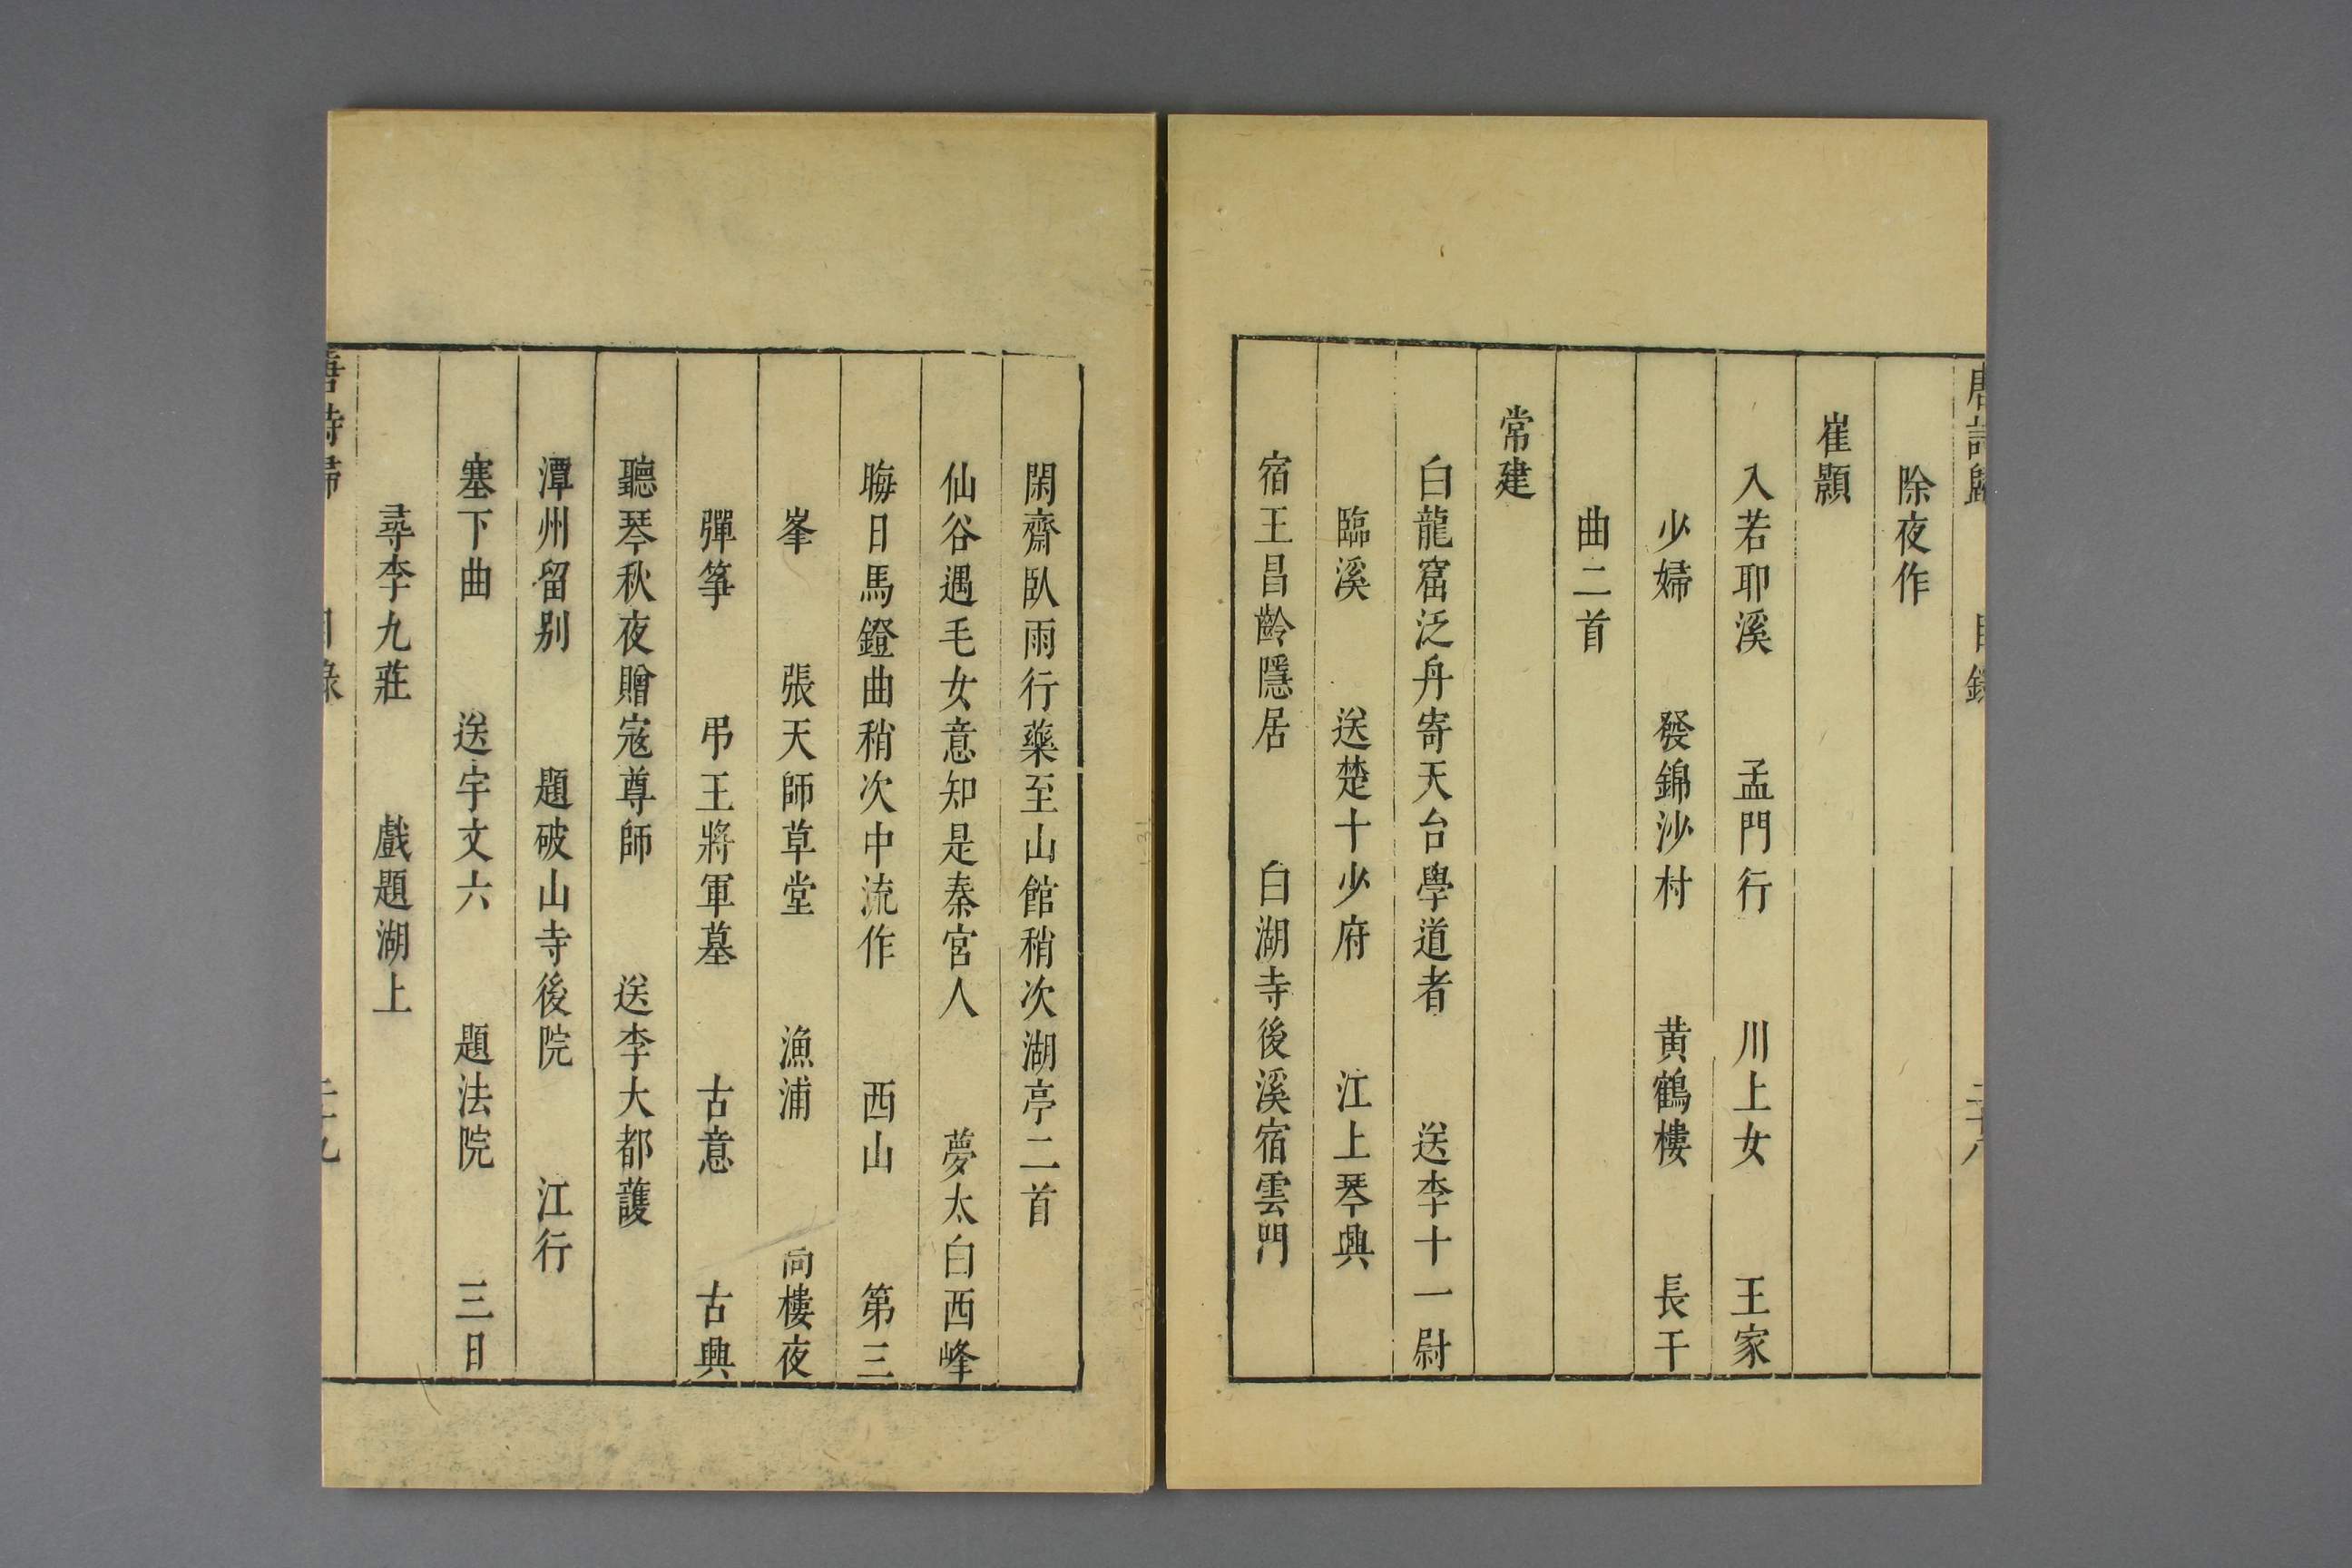 唐詩歸 目錄 二十八
除夜作
崔顥
入若耶溪 孟門行 川上女 王家
少婦 發錦沙村 黄鶴樓 長干
曲二首
常建
白龍窟泛丹寄天台學道者 送李十一尉
臨溪 送楚十少府 江上琴興
宿王昌齡隱居 白湖寺後溪宿雲門
閑齋臥雨行藥至山館稍次湖亭二首
仙谷遇毛女意知是秦宮人 夢太白西峰
晦日馬鐙曲稍次中流作 西山 第三
峯 張天師草堂 漁浦 高樓夜
彈箏 弔王將軍墓 古意 古興
聽琴秋夜贈寇尊師 送李大都護
潭州留别 題破山寺後院 江行
塞下曲 送宇文六 題法院 三日
尋李九莊 戲題湖上
唐詩歸 目錄 二十九